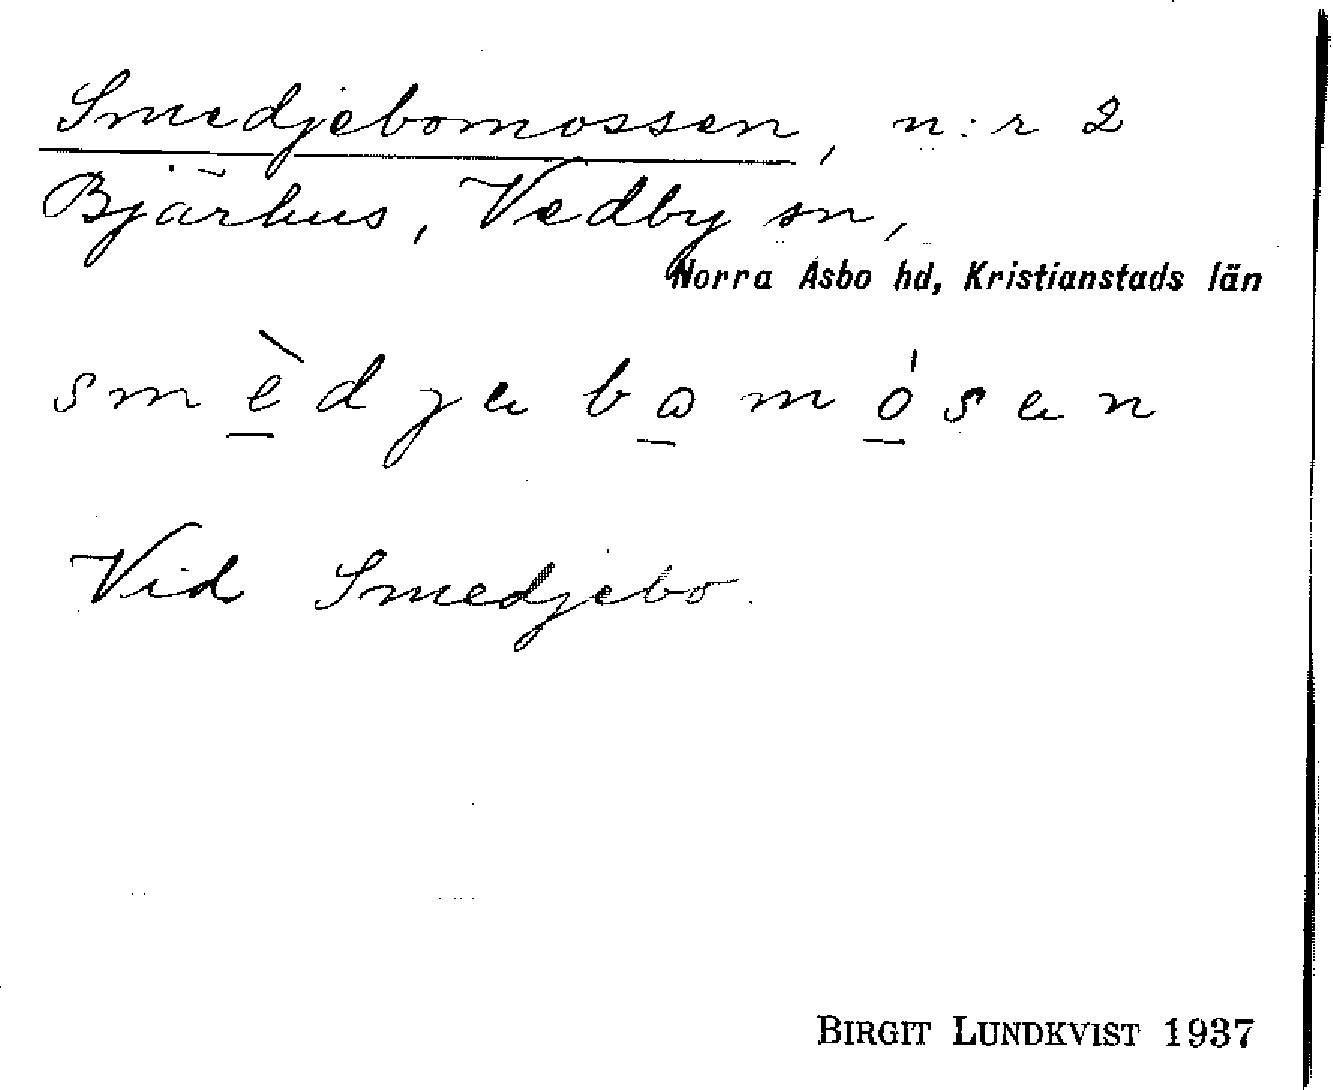 Smedjebomossen, n:r 2
Bjärhus, Vedby sn,
Norra Åsbo hd, Kristianstads län
smèdjebomósen
Vid Smedjebo.
BIRGIT LUNDKVIST 1937